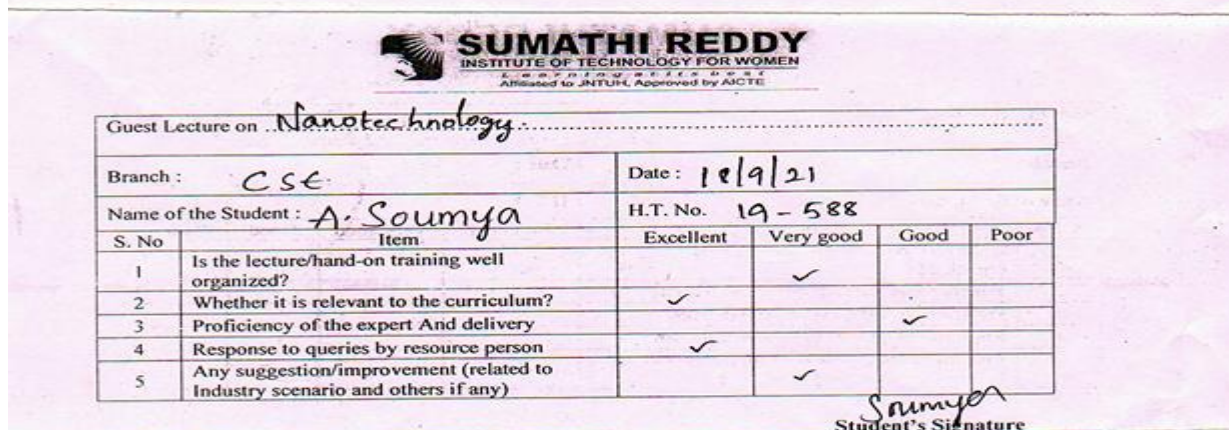 SUMATHI REDDY
INSTITUTE OF TECHNOLOGY FOR WOMEN
Learning at its best
Affiliated to JNTUH, Approved by AICTE
Guest Lecture on ..Nanotechnology.
Branch : CSE Date : 18/9/21
Name of the Student : A. Soumya H.T. No. 19-588
S. No Item Excellent Very good Good Poor
1 Is the lecture/hand-on training well
organized? ✓
2 Whether it is relevant to the curriculum? ✓
3 Proficiency of the expert And delivery ✓
4 Response to queries by resource person ✓
5 Any suggestion/improvement (related to
Industry scenario and others if any) ✓
Soumya
Student's Signature